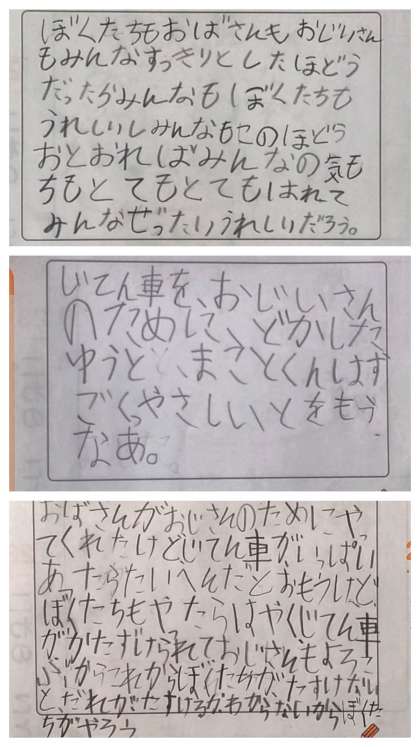 ぼくたちもおばさんもおじいさん
もみんなすっきりとしたほどう
だったらみんなもぼくたちも
うれしいしみんなもこのほどう
おとおればみんなの気も
ちもとてもとてもはれて
みんなぜったいうれしいだろう。
じてん車を、おじいさん
のために、どかした
ゆうと、まことくんはす
ごくやさしいとをもう
なあ。
おばさんがおじさんのためにやっ
てくれたけどじてん車がいっぱい
あったらたいへんだとおもうけど、
ぼくたちもやったらはやくじてん車
がかたずけられておじさんもよろこ
ぶからこれからぼくたちがたすけない
とだれがたすけるかわからないからぼくた
ちがやろう